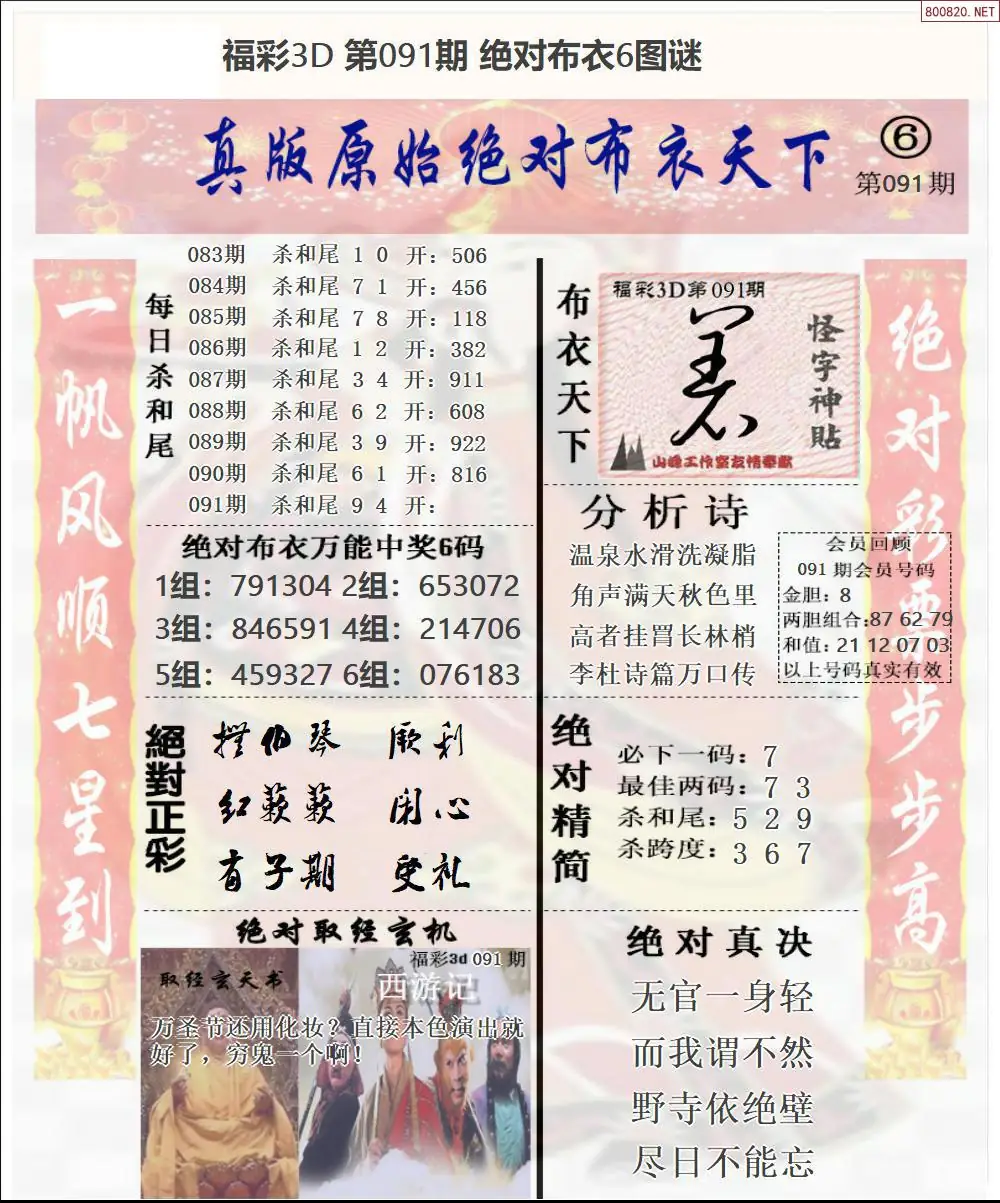 800820.NET
福彩3D 第091期 绝对布衣6图谜
真版原始绝对布衣天下
⑥
第091期
一帆风顺七星到
每日杀和尾
083期 杀和尾 1 0 开：506
084期 杀和尾 7 1 开：456
085期 杀和尾 7 8 开：118
086期 杀和尾 1 2 开：382
087期 杀和尾 3 4 开：911
088期 杀和尾 6 2 开：608
089期 杀和尾 3 9 开：922
090期 杀和尾 6 1 开：816
091期 杀和尾 9 4 开：
绝对布衣万能中奖6码
1组：791304 2组：653072
3组：846591 4组：214706
5组：459327 6组：076183
絕對正彩
伯琴
利
红蔌蔌 闲心
有子期 受礼
绝对取经玄机
福彩3d 091期
取经玄天书
西游记
万圣节还用化妆？直接本色演出就
好了，穷鬼一个啊！
布衣天下
福彩3D第091期
怪字神貼
山峰工作室友情奉献
分析诗
温泉水滑洗凝脂
角声满天秋色里
高者挂罥长林梢
李杜诗篇万口传
会员回顾
091期会员号码
金胆：8
两胆组合:87 62 79
和值：21 12 07 03
以上号码真实有效
绝对精简
必下一码：7
最佳两码：7 3
杀和尾：5 2 9
杀跨度：3 6 7
绝对真决
无官一身轻
而我谓不然
野寺依绝壁
尽日不能忘
绝对彩票步步高